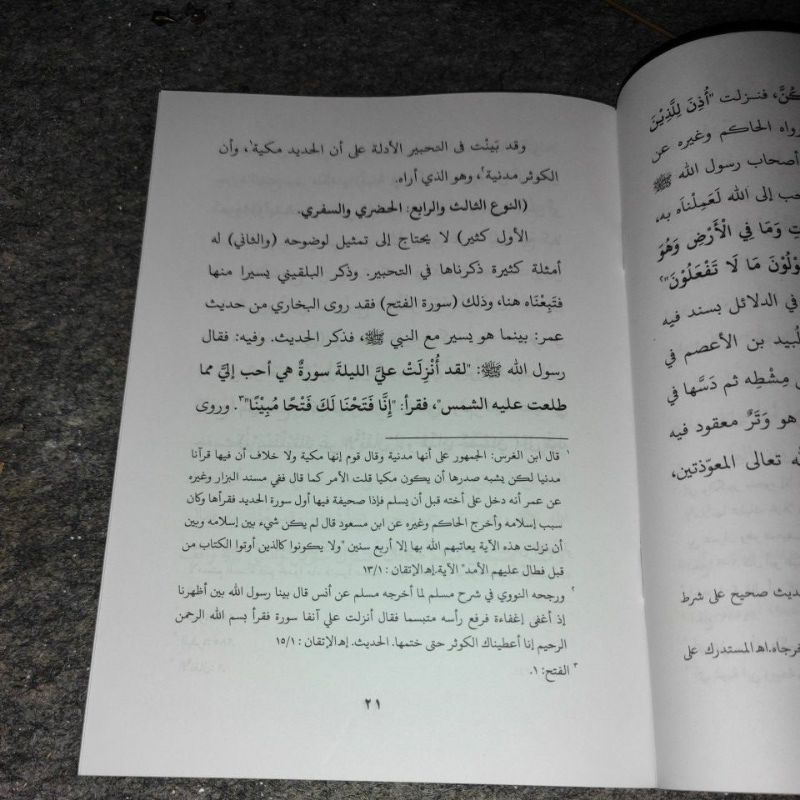 كُنَّ، فنزلت "أُذِنَ لِلَّذِيْنَ
رواه الحاكم وغيره عن
أصحاب رسول الله ﷺ
حب إلى الله لَعَمِلْنَاه به،
تِ وَمَا فِي الْأَرْضِ وَهُوَ
ـوْلُوْنَ مَا لَا تَفْعَلُوْنَ"٢
في الدلائل بسند فيه
لبيد بن الأعصم في
مِشْطِه ثم دَسَّها في
هو وَتَرٌ معقود فيه
له تعالى المعوّذتين،
حديث صحيح على شرط
خرجاه.اه المستدرك على
وقد بَينْت فى التحبير الأدلة على أن الحديد مكية١، وأن
الكوثر مدنية٢، وهو الذي أراه.
(النوع الثالث والرابع: الحضري والسفري.
الأول كثير) لا يحتاج إلى تمثيل لوضوحه (والثاني) له
أمثلة كثيرة ذكرناها في التحبير. وذكر البلقيني يسيرا منها
فتَبِعْنَاه هنا، وذلك (سورة الفتح) فقد روى البخاري من حديث
عمر: بينما هو يسير مع النبي ﷺ، فذكر الحديث. وفيه: فقال
رسول الله ﷺ: "لقد أُنْزِلَتْ عليَّ الليلةَ سورةٌ هي أحب إليَّ مما
طلعت عليه الشمس"، فقرأ: "إِنَّا فَتَحْنَا لَكَ فَتْحًا مُبِيْنًا"٣. وروى
١ قال ابن الغرس: الجمهور على أنها مدنية وقال قوم إنها مكية ولا خلاف أن فيها قرآنا
مدنيا لكن يشبه صدرها أن يكون مكيا قلت الأمر كما قال ففي مسند البزار وغيره
عن عمر أنه دخل على أخته قبل أن يسلم فإذا صحيفة فيها أول سورة الحديد فقرأها وكان
سبب إسلامه وأخرج الحاكم وغيره عن ابن مسعود قال لم يكن شيء بين إسلامه وبين
أن نزلت هذه الآية يعاتبهم الله بها إلا أربع سنين "ولا يكونوا كالذين أوتوا الكتاب من
قبل فطال عليهم الأمد" الآية.اه الإتقان : ١٣/١
٢ ورجحه النووي في شرح مسلم لما أخرجه مسلم عن أنس قال بينا رسول الله بين أظهرنا
إذ أغفى إغفاءة فرفع رأسه متبسما فقال أنزلت علي آنفا سورة فقرأ بسم الله الرحمن
الرحيم إنا أعطيناك الكوثر حتى ختمها. الحديث. إه الإتقان : ١٥/١
٣ الفتح: ١.
٢١